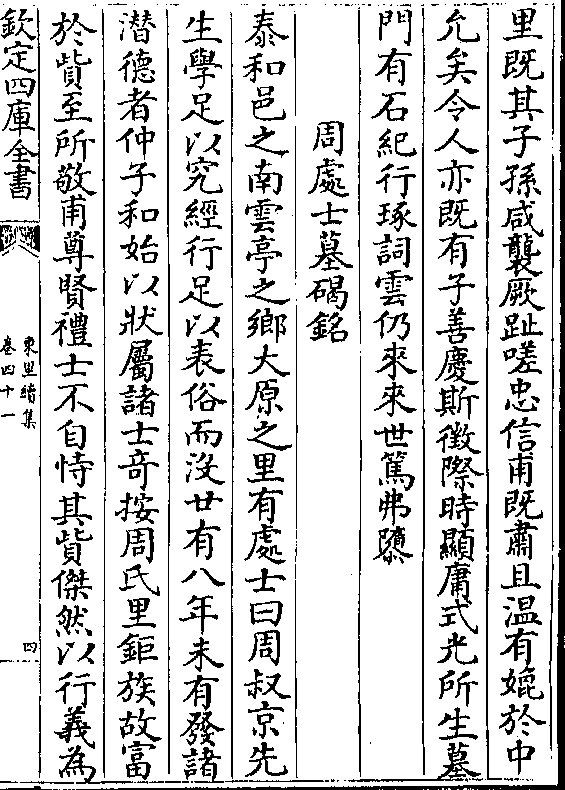 里既其子孫咸襲厥趾嗟忠信甫既肅且温有媲於中
允矣令人亦既有子善慶斯徵際時顯庸式光所生墓
門有石紀行琢詞雲仍來來世篤弗隳
周處士墓碣銘
泰和邑之南雲亭之鄉大原之里有處士曰周叔京先
生學足以究經行足以表俗而没廿有八年未有發諸
潛德者仲子和始以狀屬諸士竒按周氏里鉅族故富
於貲至所敬甫尊賢禮士不自恃其貲傑然以行義為
欽定四庫全書
東里續集
卷四十一
四